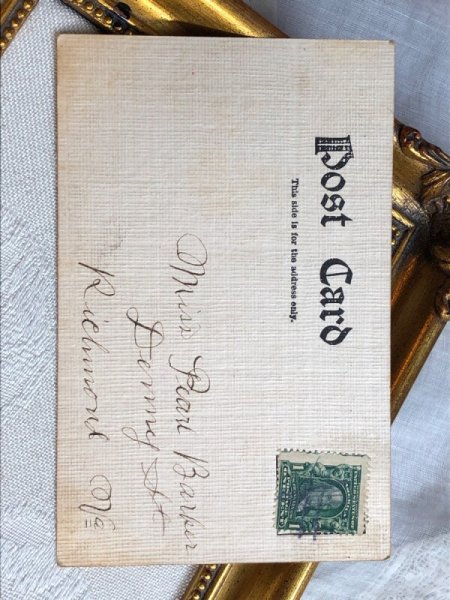 Post Card
This side is for the address only.
Miss Pearl Barker
Denny St
Richmond Va